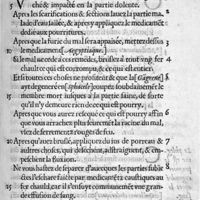 ché& impacté en la partie dolente.
Apres les scarifications & sections lauez la partie ma-
lade d'eau salée, & aprez y appliquez le medicament
dedié aux pourritures.
Apres que la furie du mal sera appaisée, mettez dessus
le medicament (Ægyptiaque).
Si le mal se cede à ces remedes, bruslez à tout vng fer
chault ce qui est corrompu, & ce qui est entier.
Et si toutes ces choses ne profitent & que la (Gangrene)
ayt degeneré en (sphacele) coupez soubdainement le
membre mort iusques à la partie saine, de sorte
qu'il n'y demeure rien de ce qui est pourry.
Apres que vous aurez resequé ce qui est pourry affin
que vous arrachez plus seurement la racine du mal,
viez de ferrements rouges de feu.
Apres qu'aurez bruslé, appliquez du ius de porreau &
autres choses, qui dessechent, astraignent, & em-
peschent la fluxion.
Ne vous hastez de separer d'auec les parties subie-
ctes l'eschare faicte par medicaments caustiques
fer chauld, car il s'ensuyt communement vne gran-
de effusion de sang.